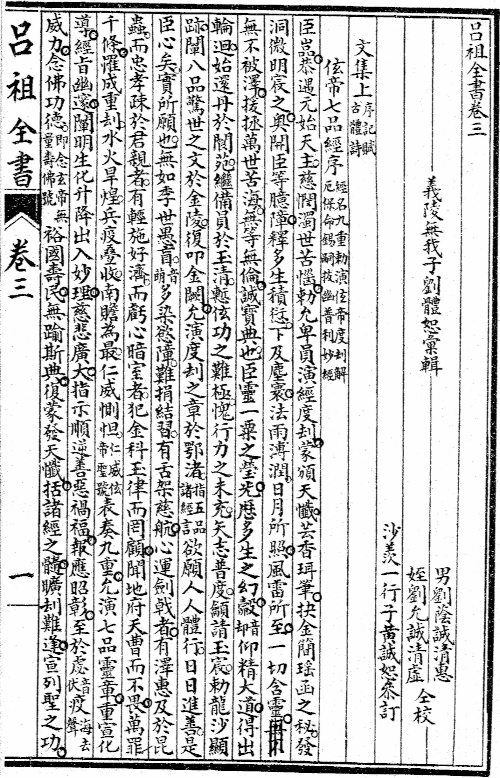 呂祖全書卷三
義陵無我子劉體恕彙輯
男劉蔭誠清惠
姪劉允誠清虛 仝校
沙羨一行子黃誠恕參訂
文集上 序記賦古體詩
伭帝七品經序 經名九重勅演伭帝度刦解厄保命錫嗣技幽普利妙經
臣嵓恭遇元始天主慈閔濁世苦惱勅允卑員演經度刦蒙頒天懺芸香珥筆抉金簡瑤函之秘發
洞微明宸之奧開臣等臆障釋多生積愆下及塵寰法雨溥潤日月所照風雷所至一切含靈
無不被澤拔拯萬世苦海無等無倫誠寶典也臣靈一粟之瑩光歷多生之幻瀫音却仰精大道得出
輪迴始還丹於閬苑繼備員於玉清慙伭功之難極愧行力之未充矢志普度籲請玉宸勅龍沙顯
跡闡八品驚世之文於金陵復叩金闕允演度刦之章於鄂渚指五品諸經言欲願人人體行日日進善是
臣心矣實所願也無如季世愚盲音萌多染欲障難捐結習有舌架慈航心運劍戟者有澤惠及於昆
蟲而忠孝疎於君親者有輕施好濟而虧心暗室者犯金科玉律而罔顧聞地府天曹而不畏萬罪
千條羅成重刦水火旱煌兵疫疊收南贍為最仁威惻怛仁威伭帝聖號表奏九重允演七品靈章重宣化
導經旨幽邃闡明生化升降出入妙理慈悲廣大指示順逆善惡禍福報應昭彰至於處音伏疫海去聲
威力念佛功德即念玄帝無量壽佛號裕國壽民無踰斯典復蒙發天懺括諸經之髓曠刦難逢宣列聖之功
呂祖全書 卷三 一